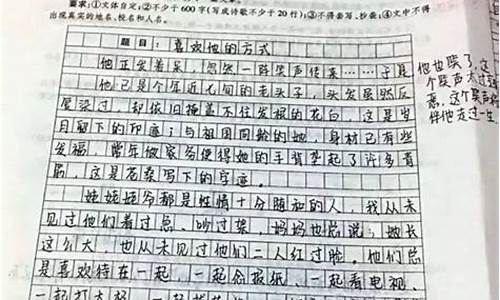 要求:①文体自定;②不少于600字(写成诗歌不少于20行);③不得套写、抄袭;④文中不得
出现真实的地名、校名和人名。
题目:喜欢他的方式
他正发着呆,忽然一阵笑声传来……于是
他已是个年近七旬的老头子,头发虽然反
复染过,却依旧掩盖不住发根的花白,这是岁
月留下的印迹;与祖国同龄的她,身材已有些
发福,常年做家务使得她的手背垄起了许多青
筋,这是苍桑写下的字迹。
姥姥姥爷都是性情十分随和的人,我从未
见过他们着过急,吵过架,妈妈也总说:她长
这么大,也从未见过他们二人红过脸。他们总
是喜欢待在一起,一起念报纸、一起看电视、
一起打太极、一起
他也笑了,这
个笑声太过
这个笑声
伴他走过一生